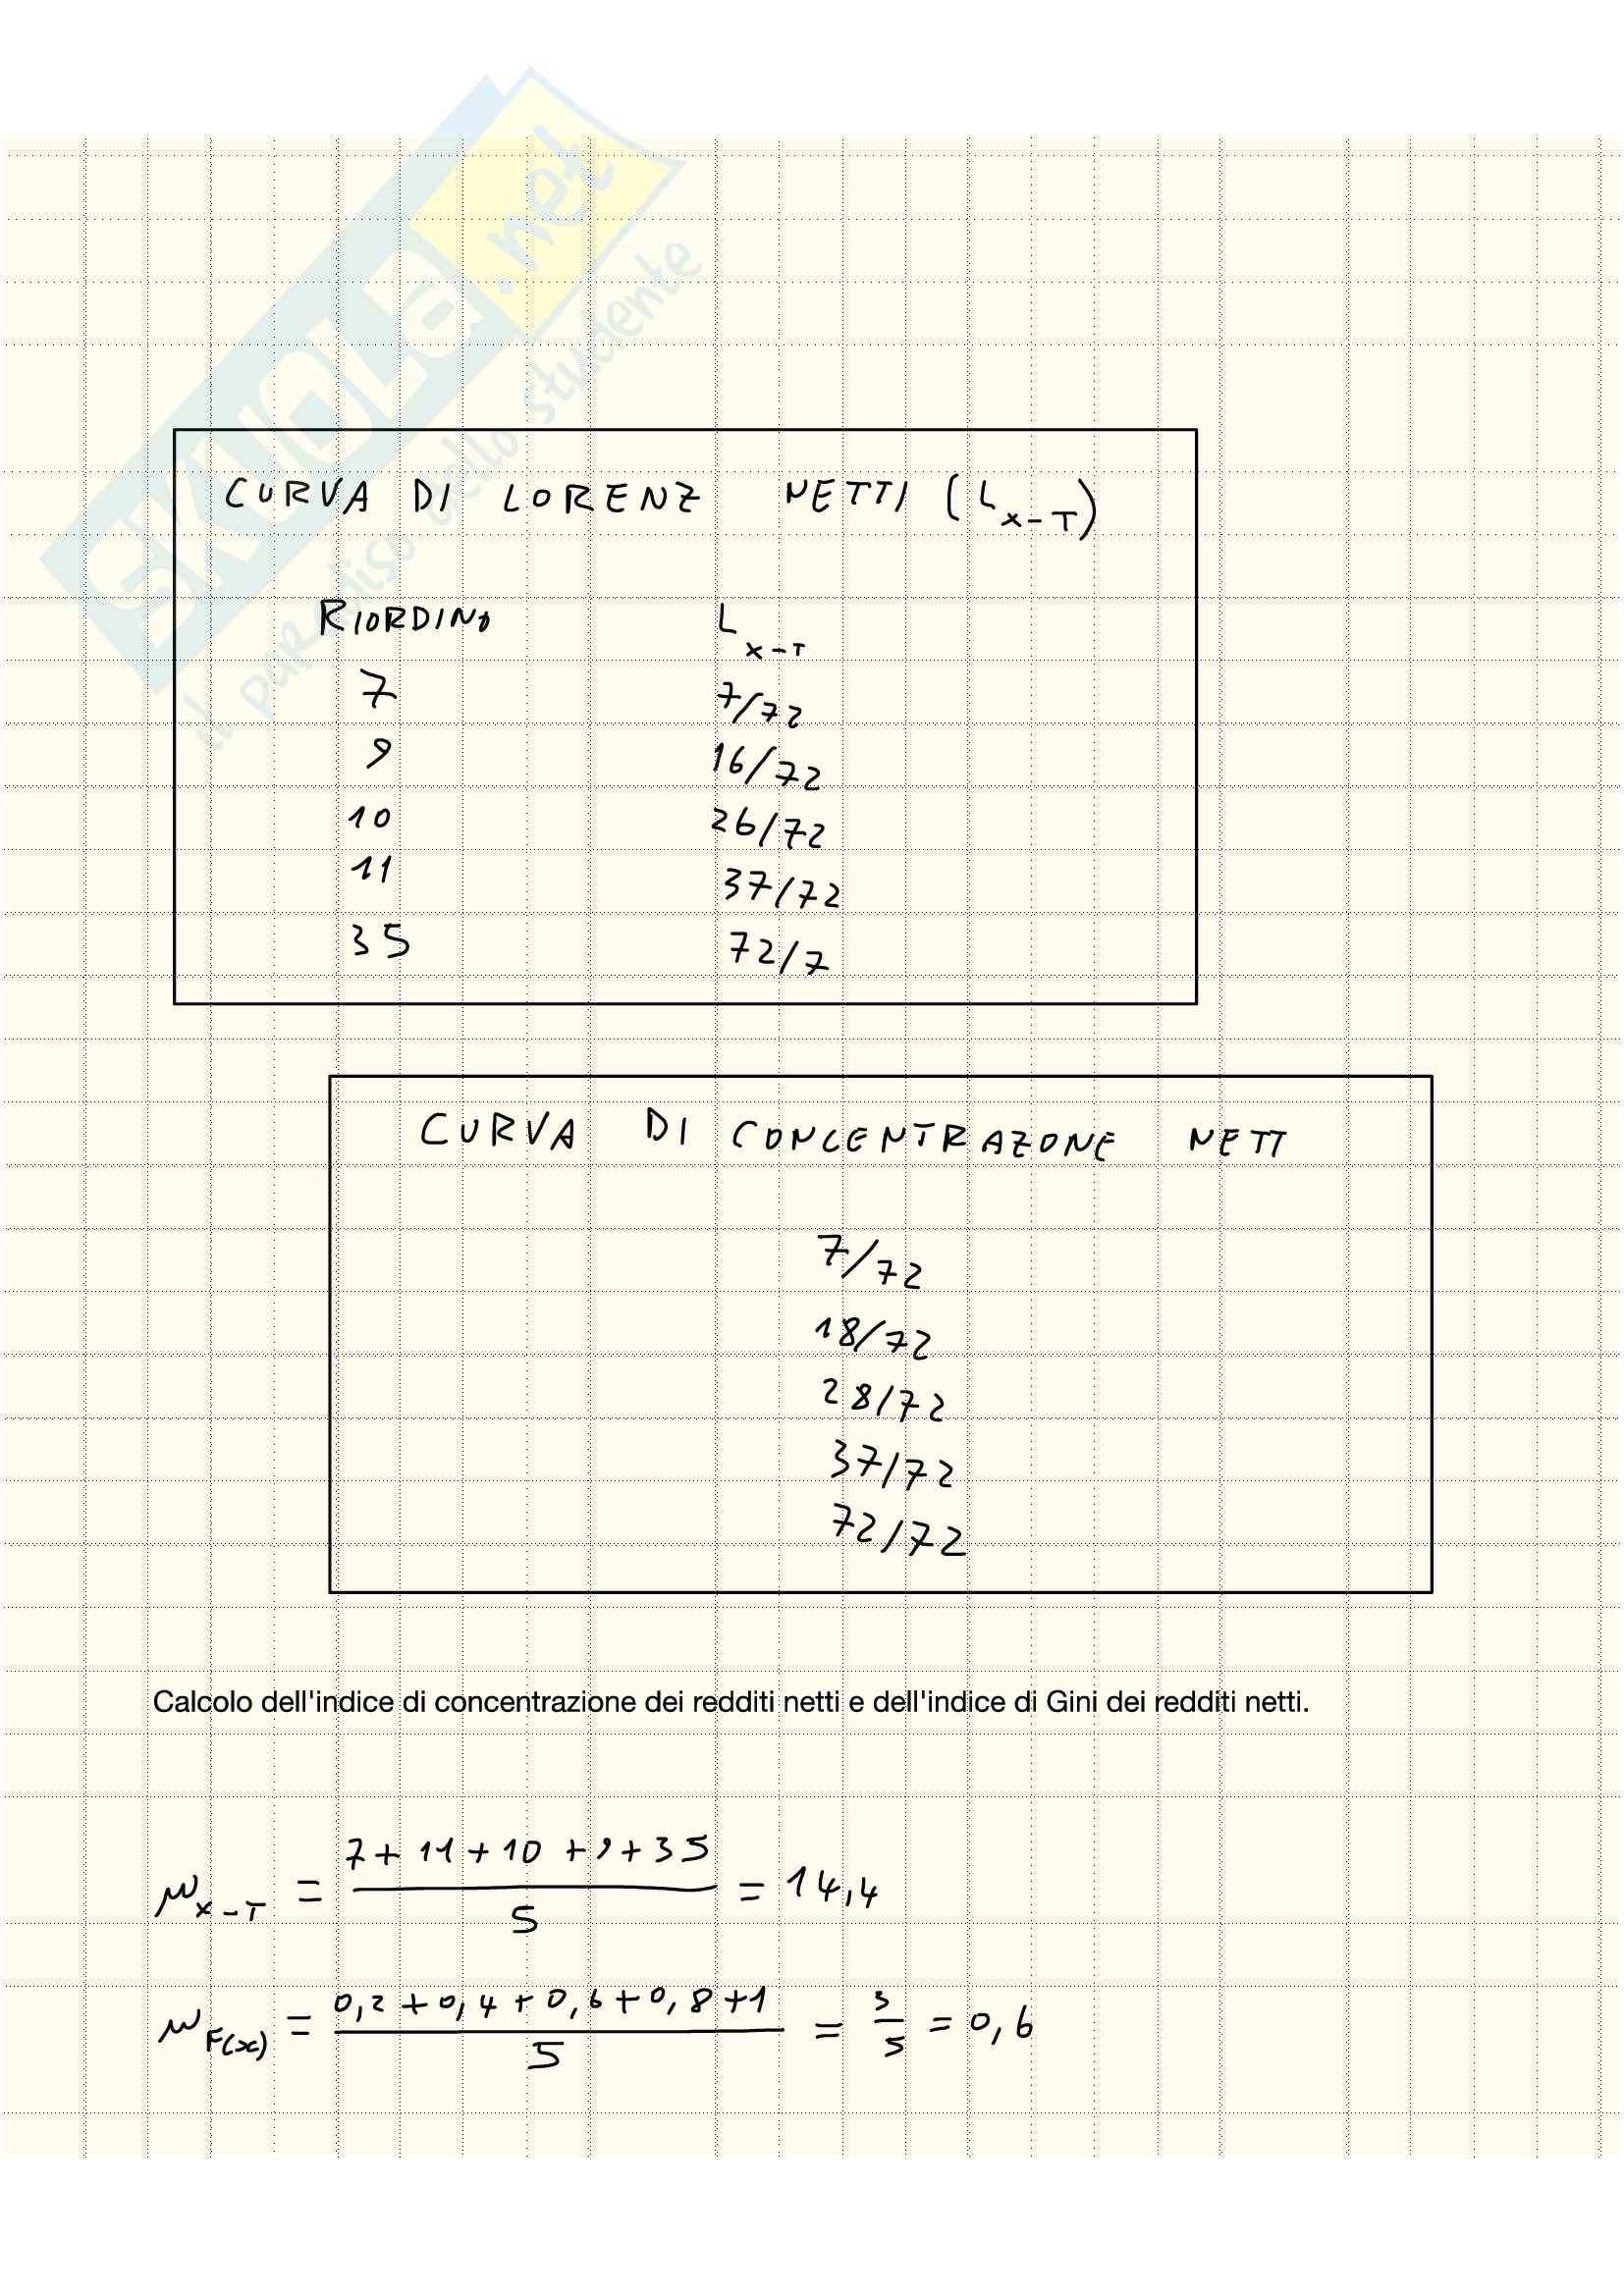 SKUOLA.net
il paradiso dello studente
CURVA DI LORENZ NETTI (L x-T)
RIORDINO L x-T
7 7/72
9 16/72
10 26/72
11 37/72
35 72/7
CURVA DI CONCENTRAZONE NETT
7/72
18/72
28/72
37/72
72/72
Calcolo dell'indice di concentrazione dei redditi netti e dell'indice di Gini dei redditi netti.
μ x-T = 7+11+10+9+35 / 5 = 14,4
μ F(x) = 0,2+0,4+0,6+0,8+1 / 5 = 3/5 = 0,6